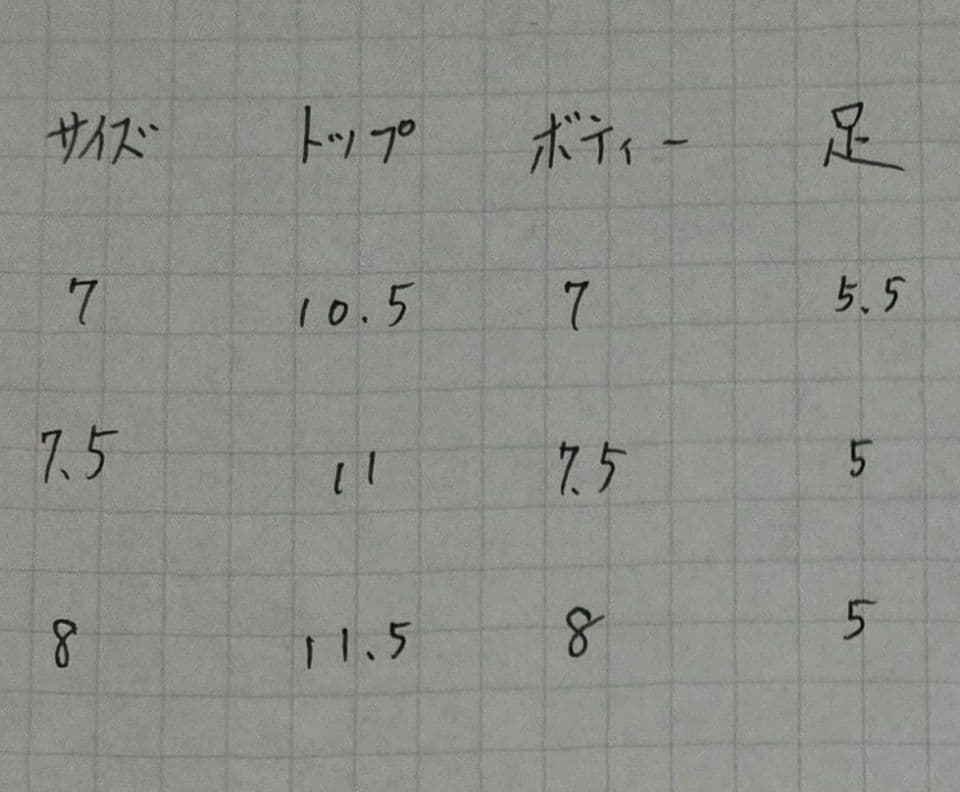 サイズ トップ ボディー 足
7 10.5 7 5.5
7.5 11 7.5 5
8 11.5 8 5